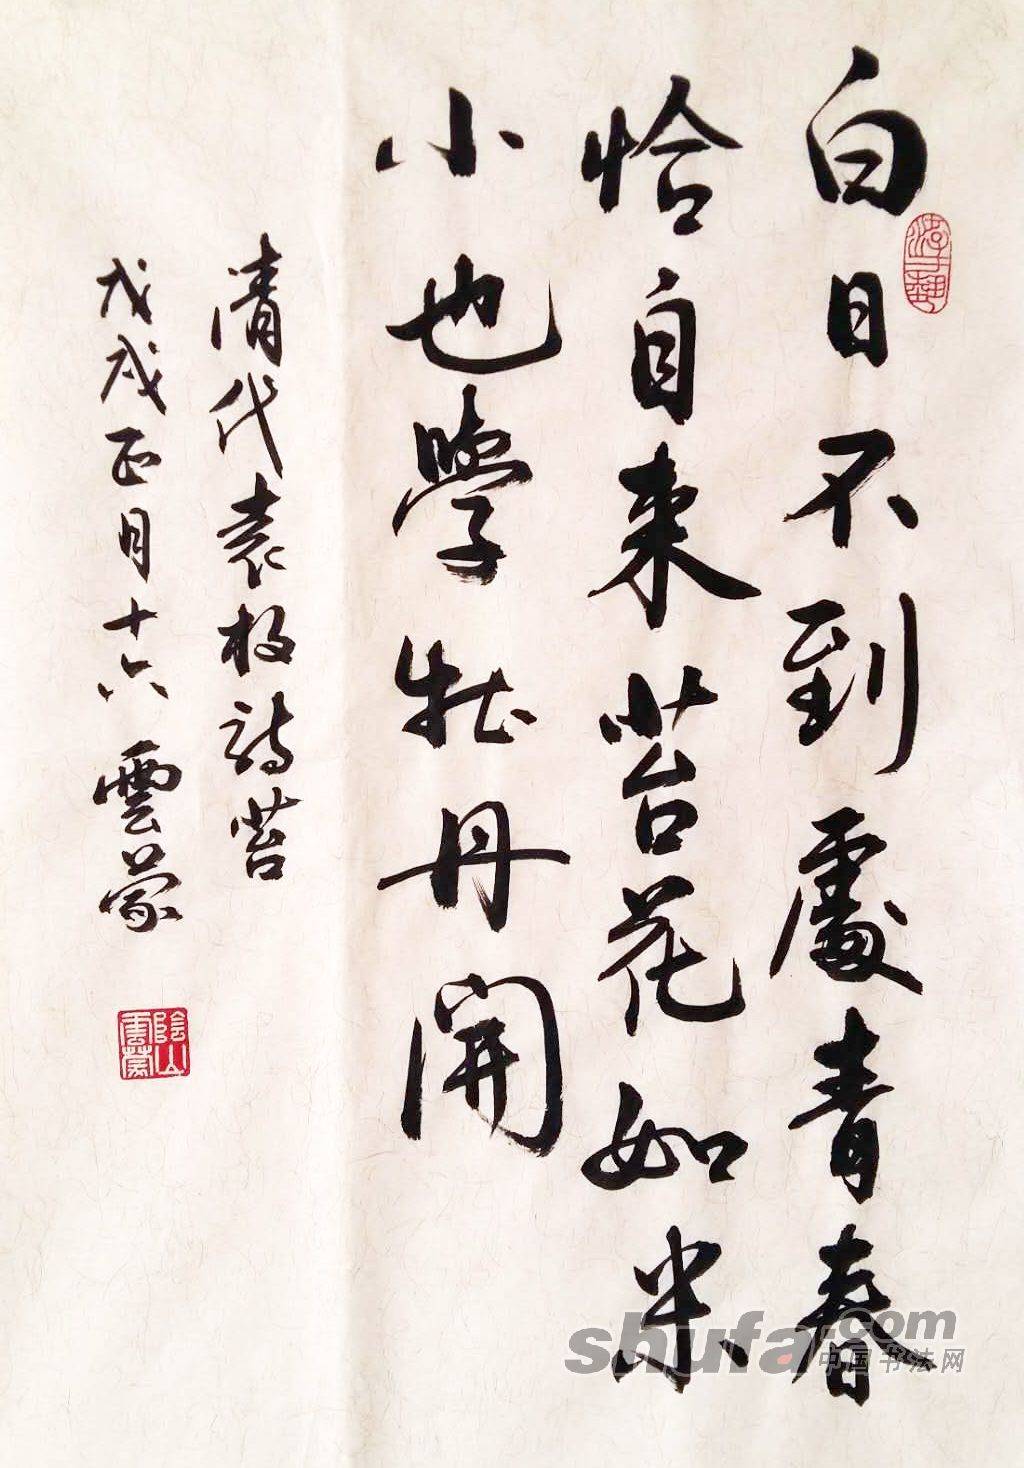 白日不到處青春
恰自来苔花如米
小也學牡丹開
清代袁枚詩苔
戊戌正月十六雲蒙
陰山雲蒙
shufa.com
中国书法网